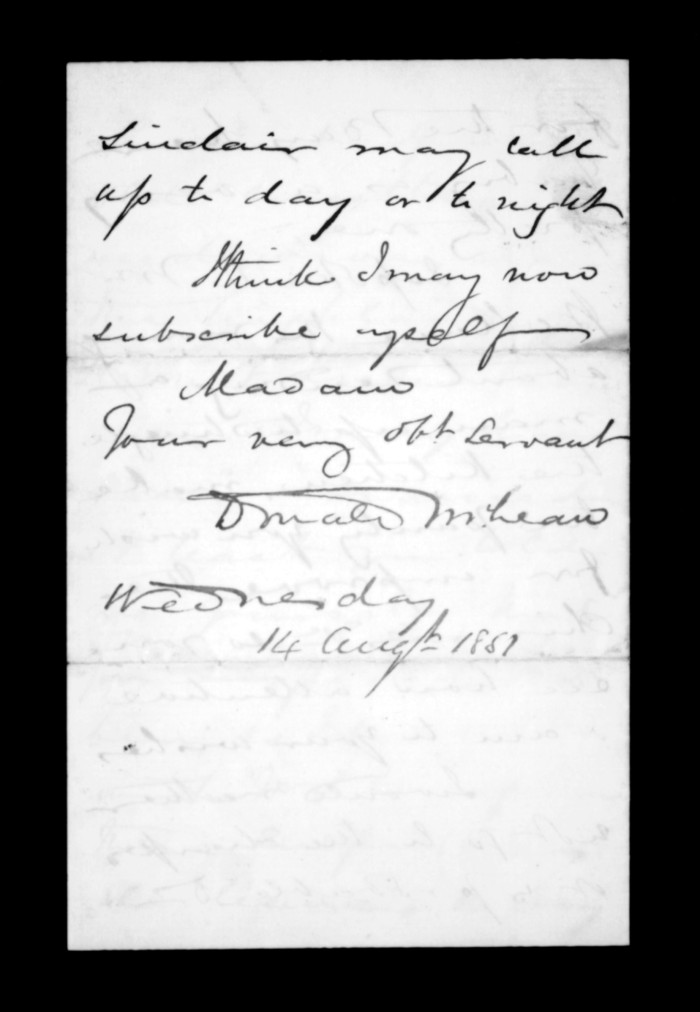 Sinclair may call
up to day or to night
I think I may now
subscribe myself
Madam
Your very obt Servant
Donald McLean
Wednesday
14 Augt 1851